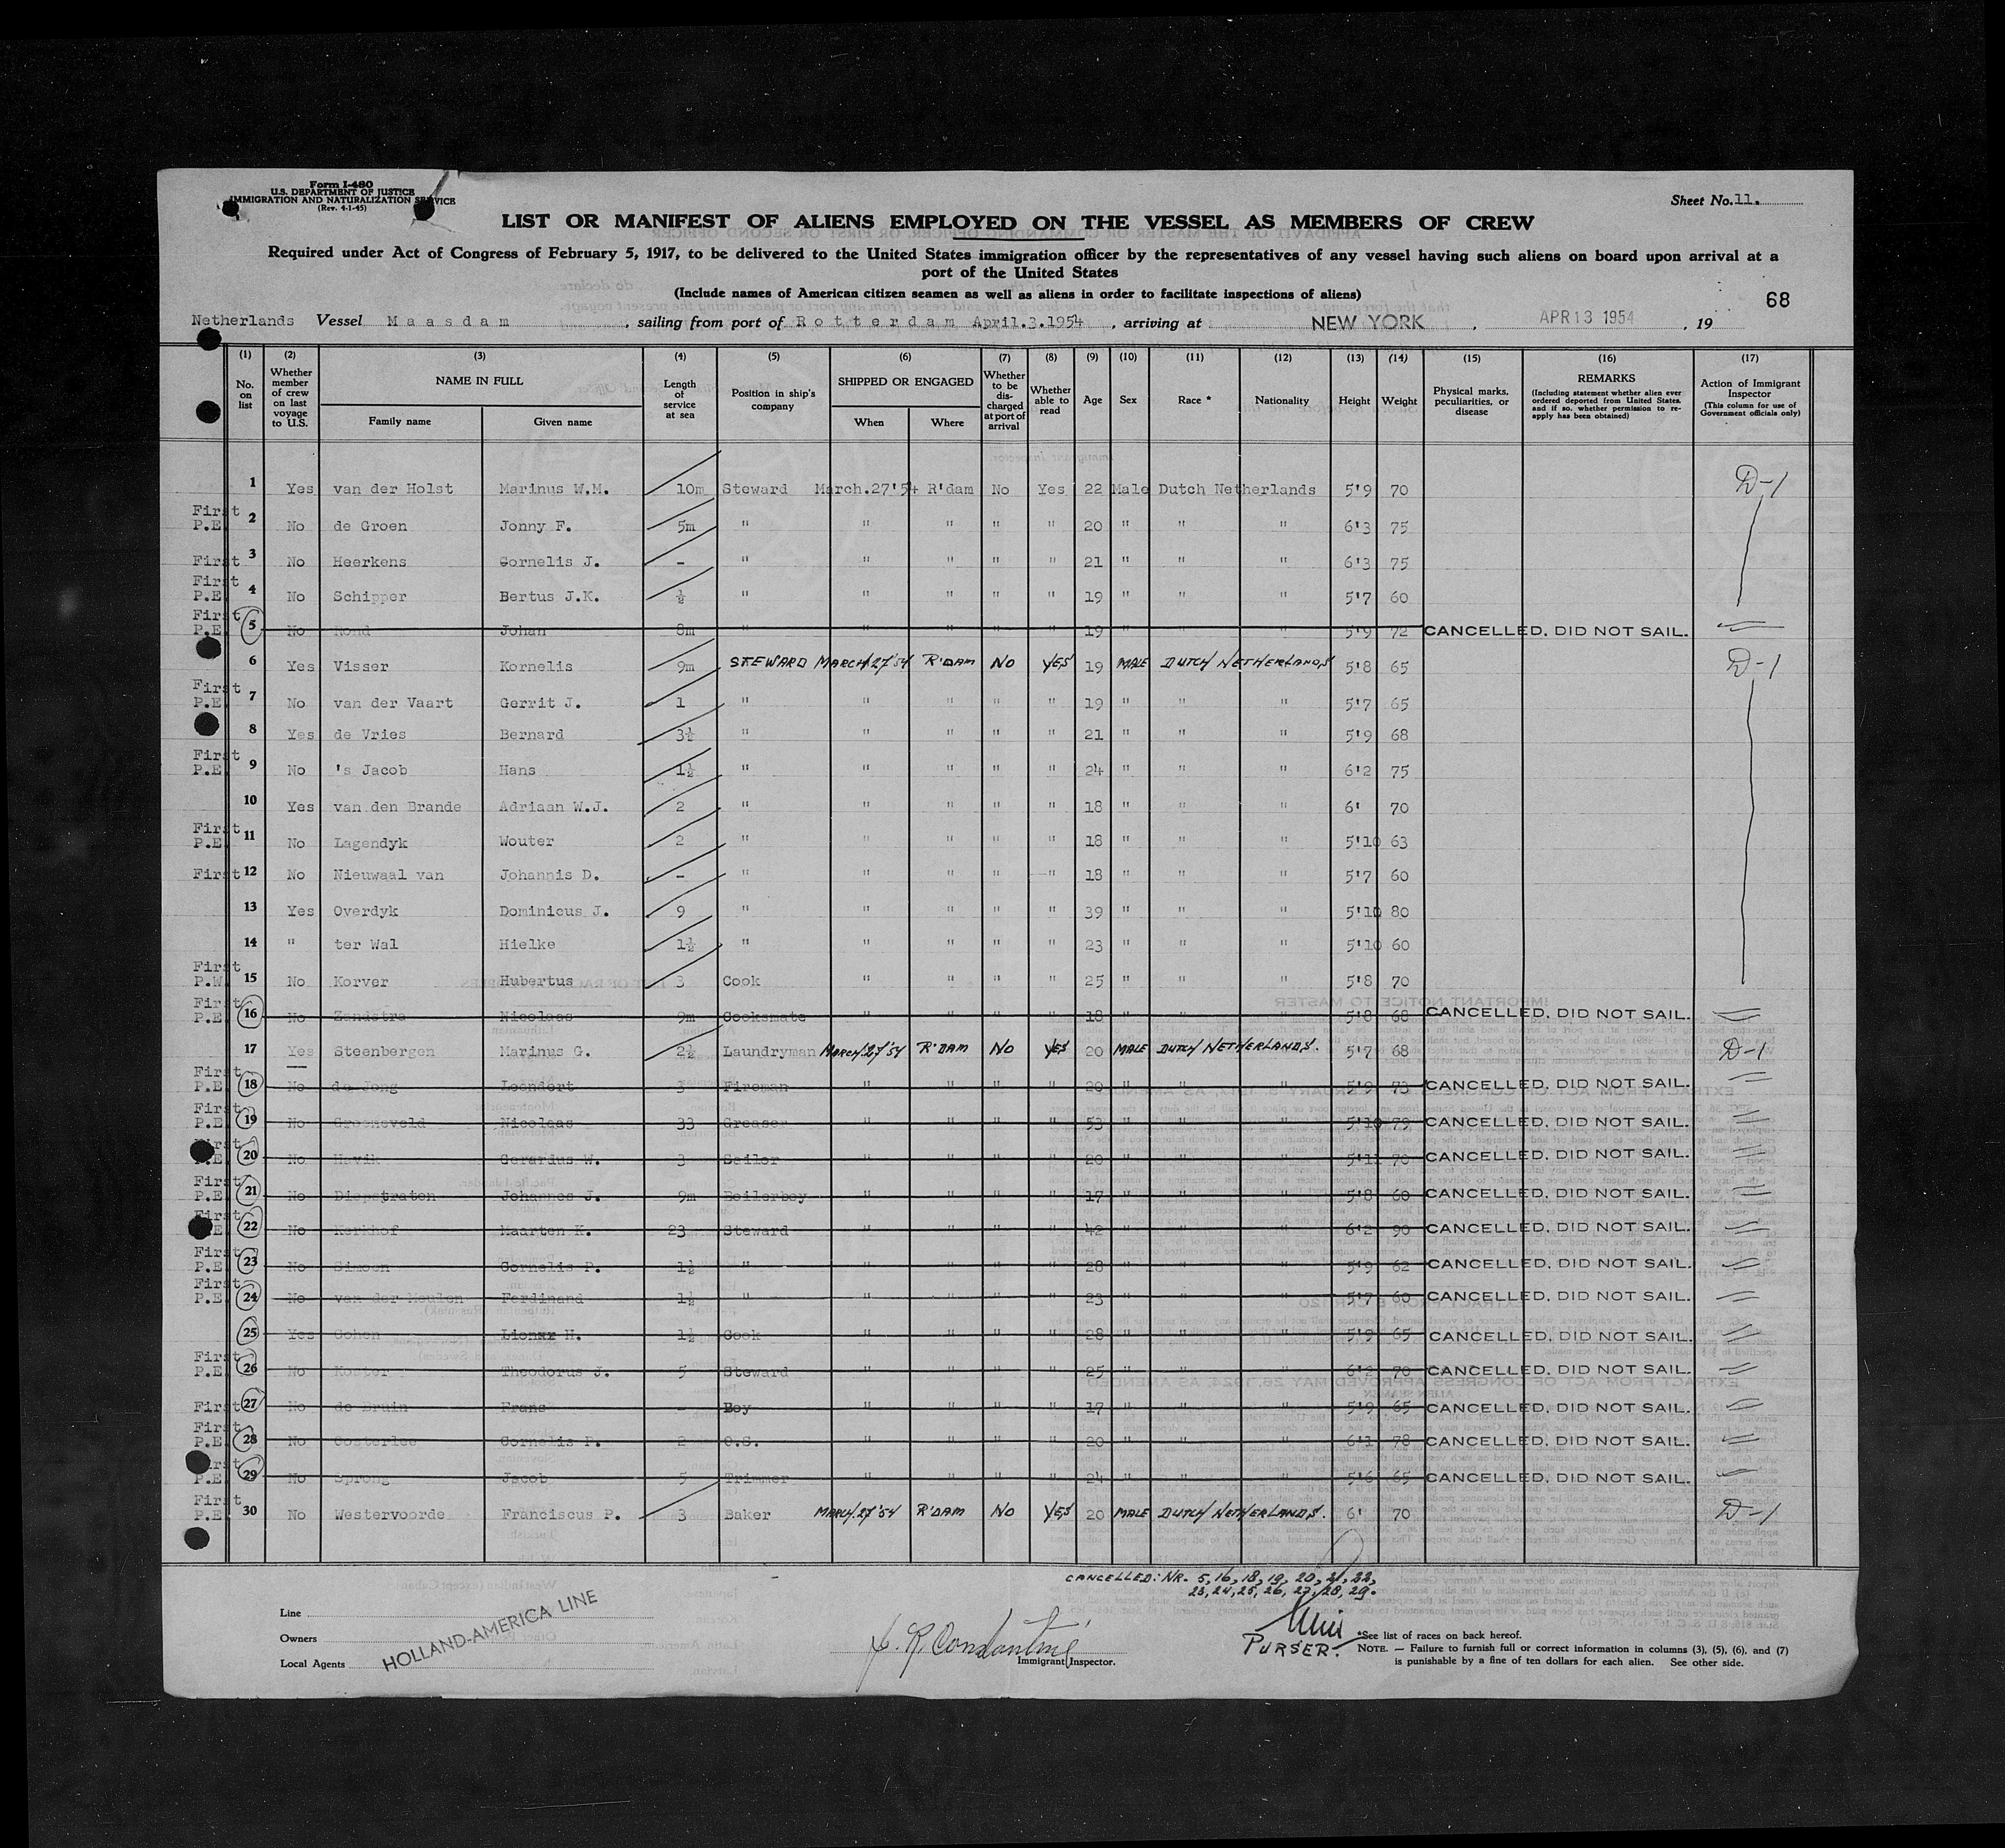 Form I-480
U.S. DEPARTMENT OF JUSTICE
IMMIGRATION AND NATURALIZATION SERVICE
(Rev. 4-1-45)
Sheet No. 11.
LIST OR MANIFEST OF ALIENS EMPLOYED ON THE VESSEL AS MEMBERS OF CREW
Required under Act of Congress of February 5, 1917, to be delivered to the United States immigration officer by the representatives of any vessel having such aliens on board upon arrival at a
port of the United States
(Include names of American citizen seamen as well as aliens in order to facilitate inspections of aliens)
68
Netherlands Vessel Maasdam, sailing from port of Rotterdam April.3.1954, arriving at NEW YORK, APR 13 1954, 19
(1) (2) (3) (4) (5) (6) (7) (8) (9) (10) (11) (12) (13) (14) (15) (16) (17)
No. on list
Whether member of crew on last voyage to U.S.
NAME IN FULL
Family name
Given name
Length of service at sea
Position in ship's company
SHIPPED OR ENGAGED
When
Where
Whether to be discharged at port of arrival
Whether able to read
Age
Sex
Race *
Nationality
Height
Weight
Physical marks, peculiarities, or disease
REMARKS
(Including statement whether alien ever ordered deported from United States, and if so, whether permission to reapply has been obtained)
Action of Immigrant Inspector
(This column for use of Government officials only)
1 Yes van der Holst Marinus W.M. 10m Steward March.27'54 R'dam No Yes 22 Male Dutch Netherlands 5'9 70 D-1
First P.E. 2 No de Groen Jonny F. 5m " " " " " 20 " " " 6'3 75
First 3 No Heerkens Cornelis J. - " " " " " 21 " " " 6'3 75
First P.E. 4 No Schipper Bertus J.K. ½ " " " " " 19 " " " 5'7 60
First P.E. 5 No Rond Johan 8m " " " " " 19 " " " 5'9 72 CANCELLED. DID NOT SAIL.
6 Yes Visser Kornelis 9m STEWARD MARCH.27'54 R'DAM NO YES 19 MALE DUTCH NETHERLANDS 5'8 65 D-1
First P.E. 7 No van der Vaart Gerrit J. 1 " " " " " 19 " " " 5'7 65
8 Yes de Vries Bernard 3½ " " " " " 21 " " " 5'9 68
First P.E. 9 No 's Jacob Hans 1½ " " " " " 24 " " " 6'2 75
10 Yes van den Brande Adriaan W.J. 2 " " " " " 18 " " " 6' 70
First P.E. 11 No Lagendyk Wouter 2 " " " " " 18 " " " 5'10 63
First 12 No Nieuwaal van Johannis D. - " " " " " 18 " " " 5'7 60
13 Yes Overdyk Dominicus J. 9 " " " " " 39 " " " 5'10 80
14 " ter Wal Hielke 1½ " " " " " 23 " " " 5'10 60
First P.W. 15 No Korver Hubertus 3 Cook " " " " 25 " " " 5'8 70
First P.E. 16 No Zandstra Nicolaas 9m Cooksmate " " " " 18 " " " 5'8 68 CANCELLED. DID NOT SAIL.
17 Yes Steenbergen Marinus G. 2½ Laundryman MARCH.27'54 R'DAM NO YES 20 MALE DUTCH NETHERLANDS. 5'7 68 D-1
First P.E. 18 No de Jong Leendert 3 Fireman " " " " 20 " " " 5'9 73 CANCELLED. DID NOT SAIL.
First P.E. 19 No Groeneveld Nicolaas 33 Greaser " " " " 53 " " " 5'10 79 CANCELLED. DID NOT SAIL.
First P.E. 20 No Havik Gerardus W. 3 Sailor " " " " 20 " " " 5'11 70 CANCELLED. DID NOT SAIL.
First P.E. 21 No Diepstraten Johannes J. 9m Boilerboy " " " " 17 " " " 5'8 60 CANCELLED. DID NOT SAIL.
First P.E. 22 No Kerkhof Maarten K. 23 Steward " " " " 42 " " " 6'2 90 CANCELLED. DID NOT SAIL.
First P.E. 23 No Simoen Cornelis P. 1½ " " " " " 28 " " " 5'9 62 CANCELLED. DID NOT SAIL.
First P.E. 24 No van der Meulen Ferdinand 1½ " " " " " 23 " " " 5'7 60 CANCELLED. DID NOT SAIL.
25 Yes Cohen H. 1½ Cook " " " " 28 " " " 5'9 65 CANCELLED. DID NOT SAIL.
First P.E. 26 No Koster Theodorus J. 5 Steward " " " " 25 " " " 6'2 70 CANCELLED. DID NOT SAIL.
First 27 No de Bruin Frans - Boy " " " " 17 " " " 5'9 65 CANCELLED. DID NOT SAIL.
First P.E. 28 No Oosterlee Cornelis P. 2 O.S. " " " " 20 " " " 6'1 78 CANCELLED. DID NOT SAIL.
First P.E. 29 No Sprong Jacob 5 Trimmer " " " " 24 " " " 5'6 65 CANCELLED. DID NOT SAIL.
First P.E. 30 No Westervoorde Franciscus P. 3 Baker MARCH.27'54 R'DAM NO YES 20 MALE DUTCH NETHERLANDS. 6' 70 D-1
CANCELLED: NR. 5, 16, 18, 19, 20, 21, 22,
23, 24, 25, 26, 27, 28, 29.
Line
Owners
Local Agents
HOLLAND-AMERICA LINE
J. R. Constantine
Immigrant Inspector.
PURSER.
*See list of races on back hereof.
NOTE. — Failure to furnish full or correct information in columns (3), (5), (6), and (7)
is punishable by a fine of ten dollars for each alien. See other side.